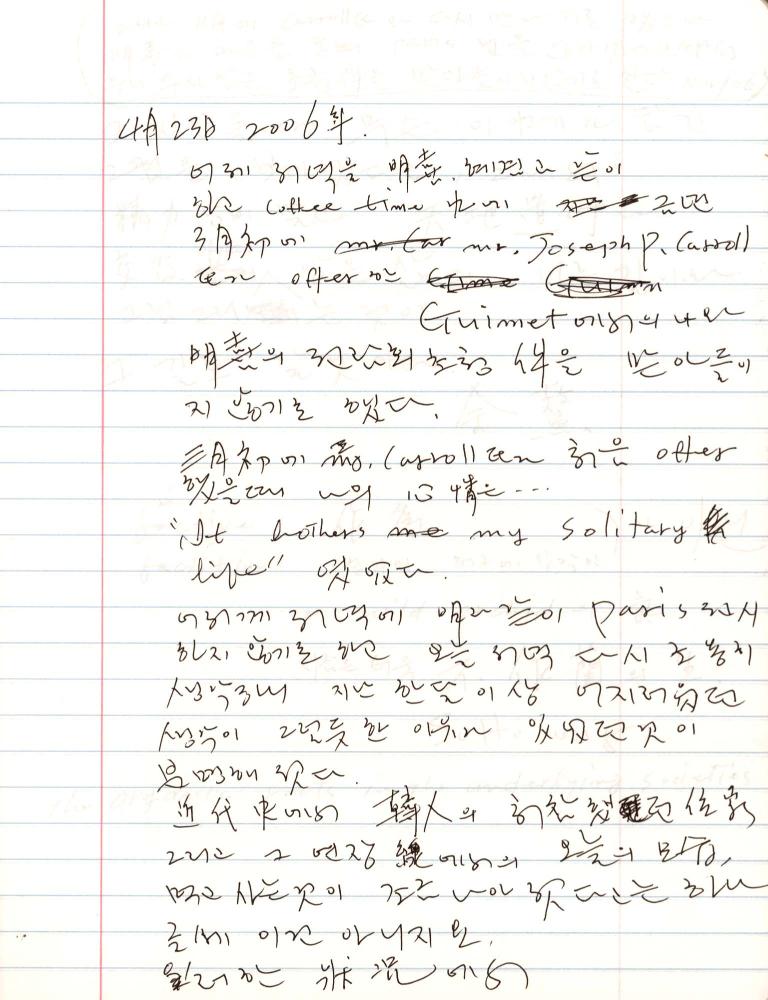 4月 23日 2006年.
어제 저녁을 明憙, 혜련과 같이
하고 coffee time 中에 금년
3月初에 mr. Car mr. Joseph P. Carroll
로부터 offer 한
Guimet 에서의 나와
明憙의 전람회 초청 件을 받아들이
지 않기로 했다.
三月初에 mr. Carroll 처음 offer
했을때 나의 心情은 ...
"It bothers me my solitary
life" 였었다.
어제 저녁에 明과 같이 paris 전시
하지 않기로 하고 오늘 저녁 다시 조용히
생각하니 지난 한달 이상 어지러웠던
생각이 그럴듯한 이유가 있었던 것이
분명해 졌다.
近代史에서 韓人의 처참했던 位置
그리고 그 연장 線에서의 오늘의 모습,
먹고 사는것이 조금 나아졌다고는 하나
글쎄 이건 아니지요.
이러한 狀況에서